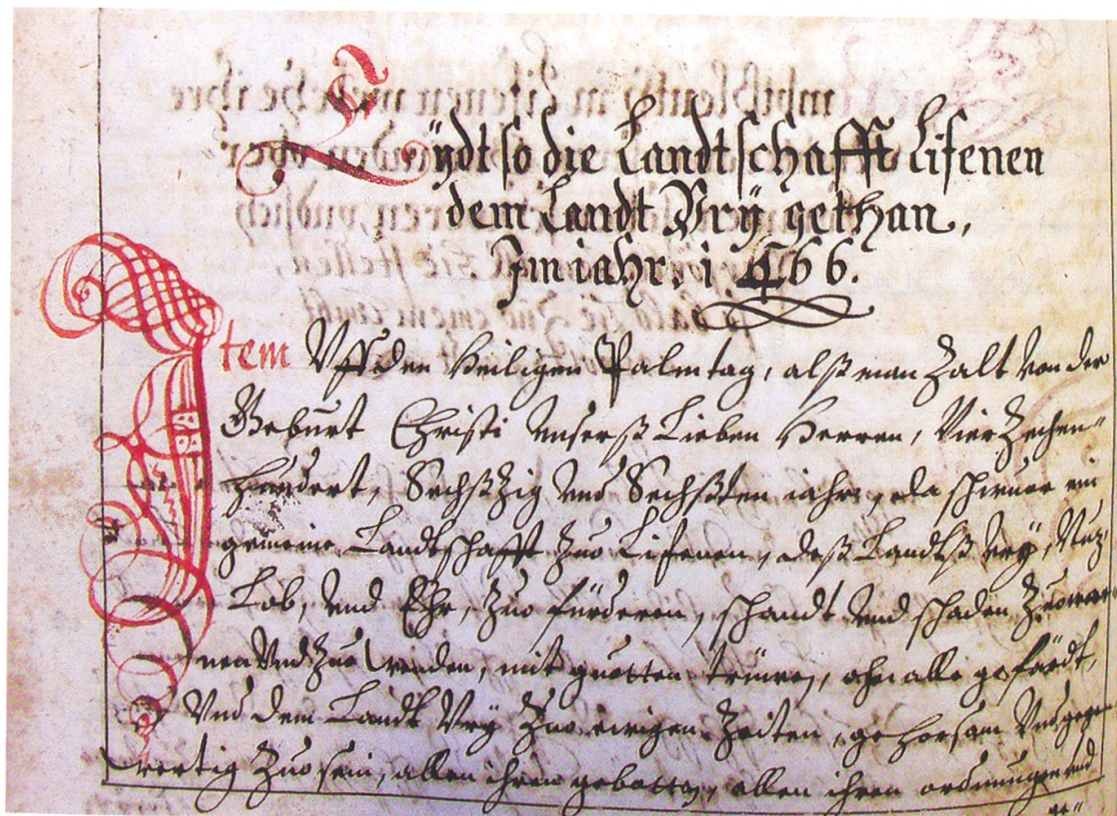 Eÿdt so die Landtschafft Lifenen
dem Landt Vrÿ gethan,
Im iahr. i 466.
Item Vff den Heiligen Palmtag, alß man Zalt von der
Geburt Christi vnserß Lieben Herren, Vierzechen"
hundert, Sechßzig vnd Sechßten iahr, da schwuor ein
gemeine Landtschafft Zuo Lifenen, deß Landtß Vrÿ, Nuz
Lob, vnd Ehr, Zuo fürderen, schandt vnd schaden Zuo war"
nen Vnd Zuo wenden, mit guotten trüwen, ohn alle gefärdt,
Vnd dem Landt Vrÿ Zuo ewigen Zeiten, gehorsam Vnd gegen
wertig Zuo sein, allen ihren gebotten, allen ihren ordnungen vnd
ge"